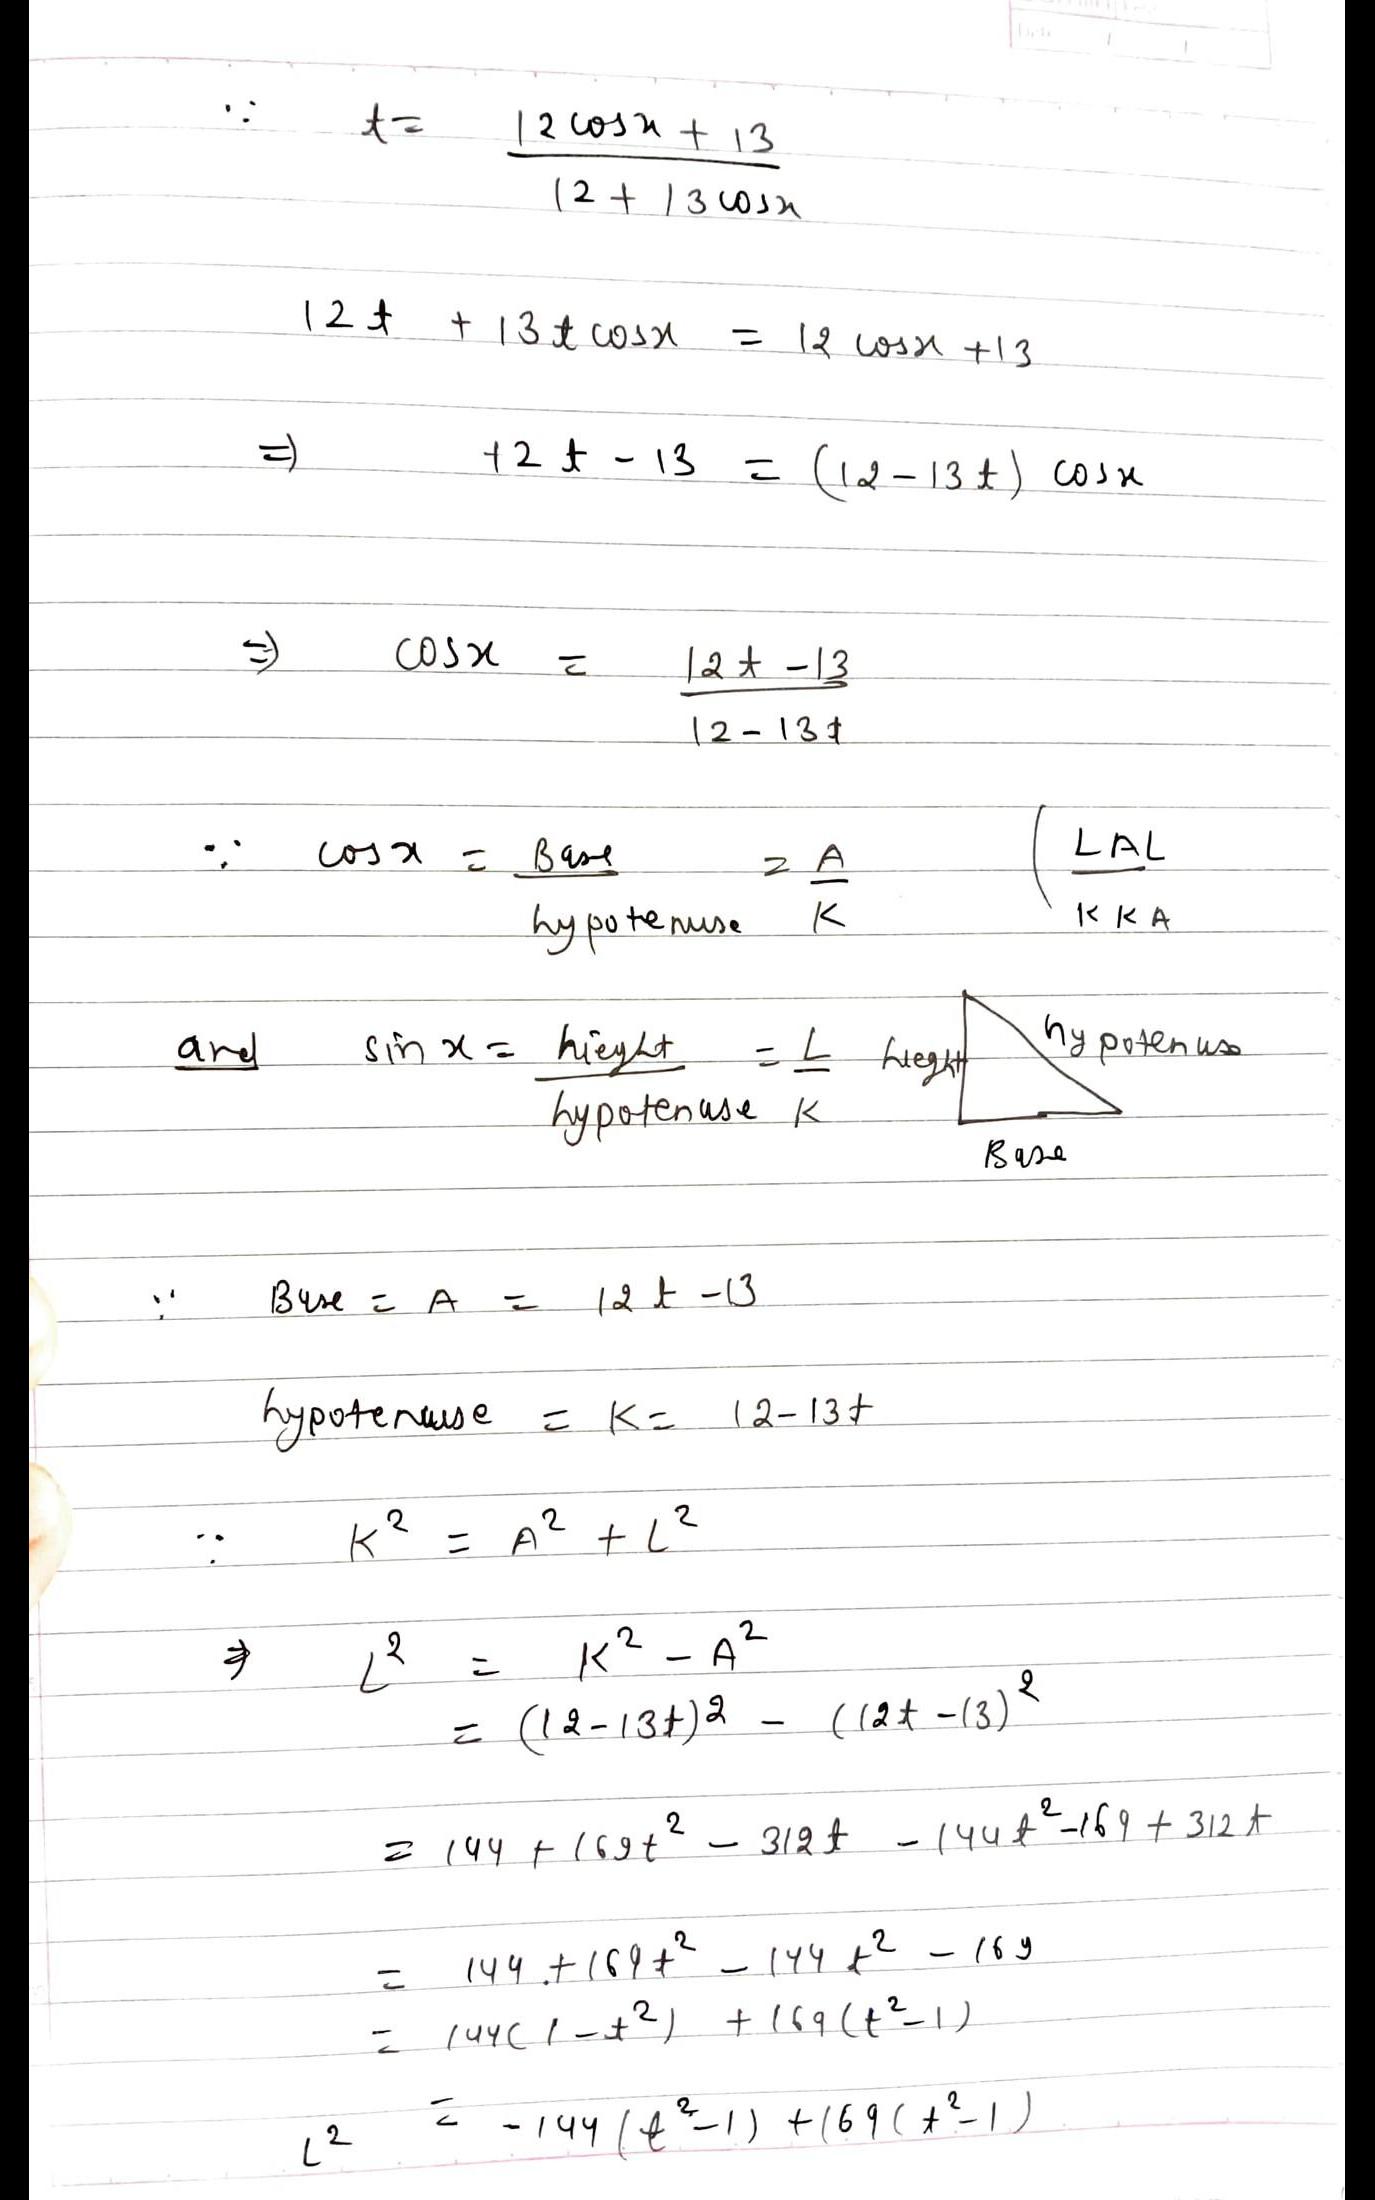 Date / /
∵ t = (12 cosx + 13)/(12 + 13 cosx)
12t + 13t cosx = 12 cosx + 13
⇒ 12t - 13 = (12 - 13t) cosx
⇒ cosx = (12t - 13)/(12 - 13t)
∵ cosx = Base/hypotenuse = A/K ( LAL/KKA
and sin x = hieght/hypotenuse = L/K
hieght
hypotenuse
Base
∵ Base = A = 12t - 13
hypotenuse = K = 12 - 13t
∵ K² = A² + L²
⇒ L² = K² - A²
= (12 - 13t)² - (12t - 13)²
= 144 + 169t² - 312t - 144t² - 169 + 312t
= 144 + 169t² - 144t² - 169
= 144(1 - t²) + 169(t² - 1)
L² = -144(t² - 1) + 169(t² - 1)